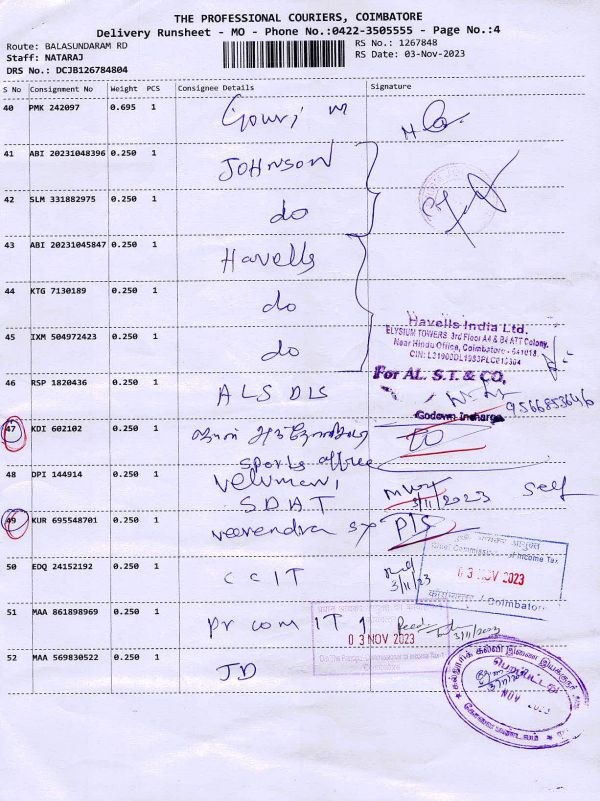 THE PROFESSIONAL COURIERS, COIMBATORE
Delivery Runsheet - MO - Phone No.:0422-3505555 - Page No.:4
Route: BALASUNDARAM RD
RS No.: 1267848
Staff: NATARAJ
RS Date: 03-Nov-2023
DRS No.: DCJB126784804
S No Consignment No Weight PCS Consignee Details Signature
40 PMK 242097 0.695 1 Gouri m
41 ABI 20231048396 0.250 1 JOHNSON
42 SLM 331882975 0.250 1 do
43 ABI 20231045847 0.250 1 Havells
44 KTG 7130189 0.250 1 do
45 IXM 504972423 0.250 1 do
Havells India Ltd.
ELYSIUM TOWERS 3rd Floor A4 & B4 ATT Colony,
Near Hindu Office, Coimbatore - 641018.
For AL. S.T. & CO,
Godown Incharge
9566853646
46 RSP 1820436 0.250 1 ALS DLS
47 KDI 602102 0.250 1
sports office
48 DPI 144914 0.250 1 velumani,
S.D.A.T
3/11/2023 Self
49 KUR 695548701 0.250 1 veerendra
50 EDQ 24152192 0.250 1 CCIT
3/11/23
Chief Commissioner of Income Tax
03 NOV 2023
/ Coimbatore
51 MAA 861898969 0.250 1 Pr com IT 1
03 NOV 2023
3/11/2023
52 MAA 569830522 0.250 1 JD
கல்லூரிக் கல்வி இணை இயக்குநர்
NOV 2023